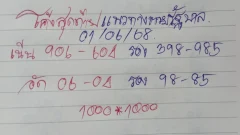 โค้งสุดท้าย แนวทางรัฐบาล
01/06/68
เน้น 906-604 รอง 398-985
จัด 06-04 รอง 98-85
1000*1000